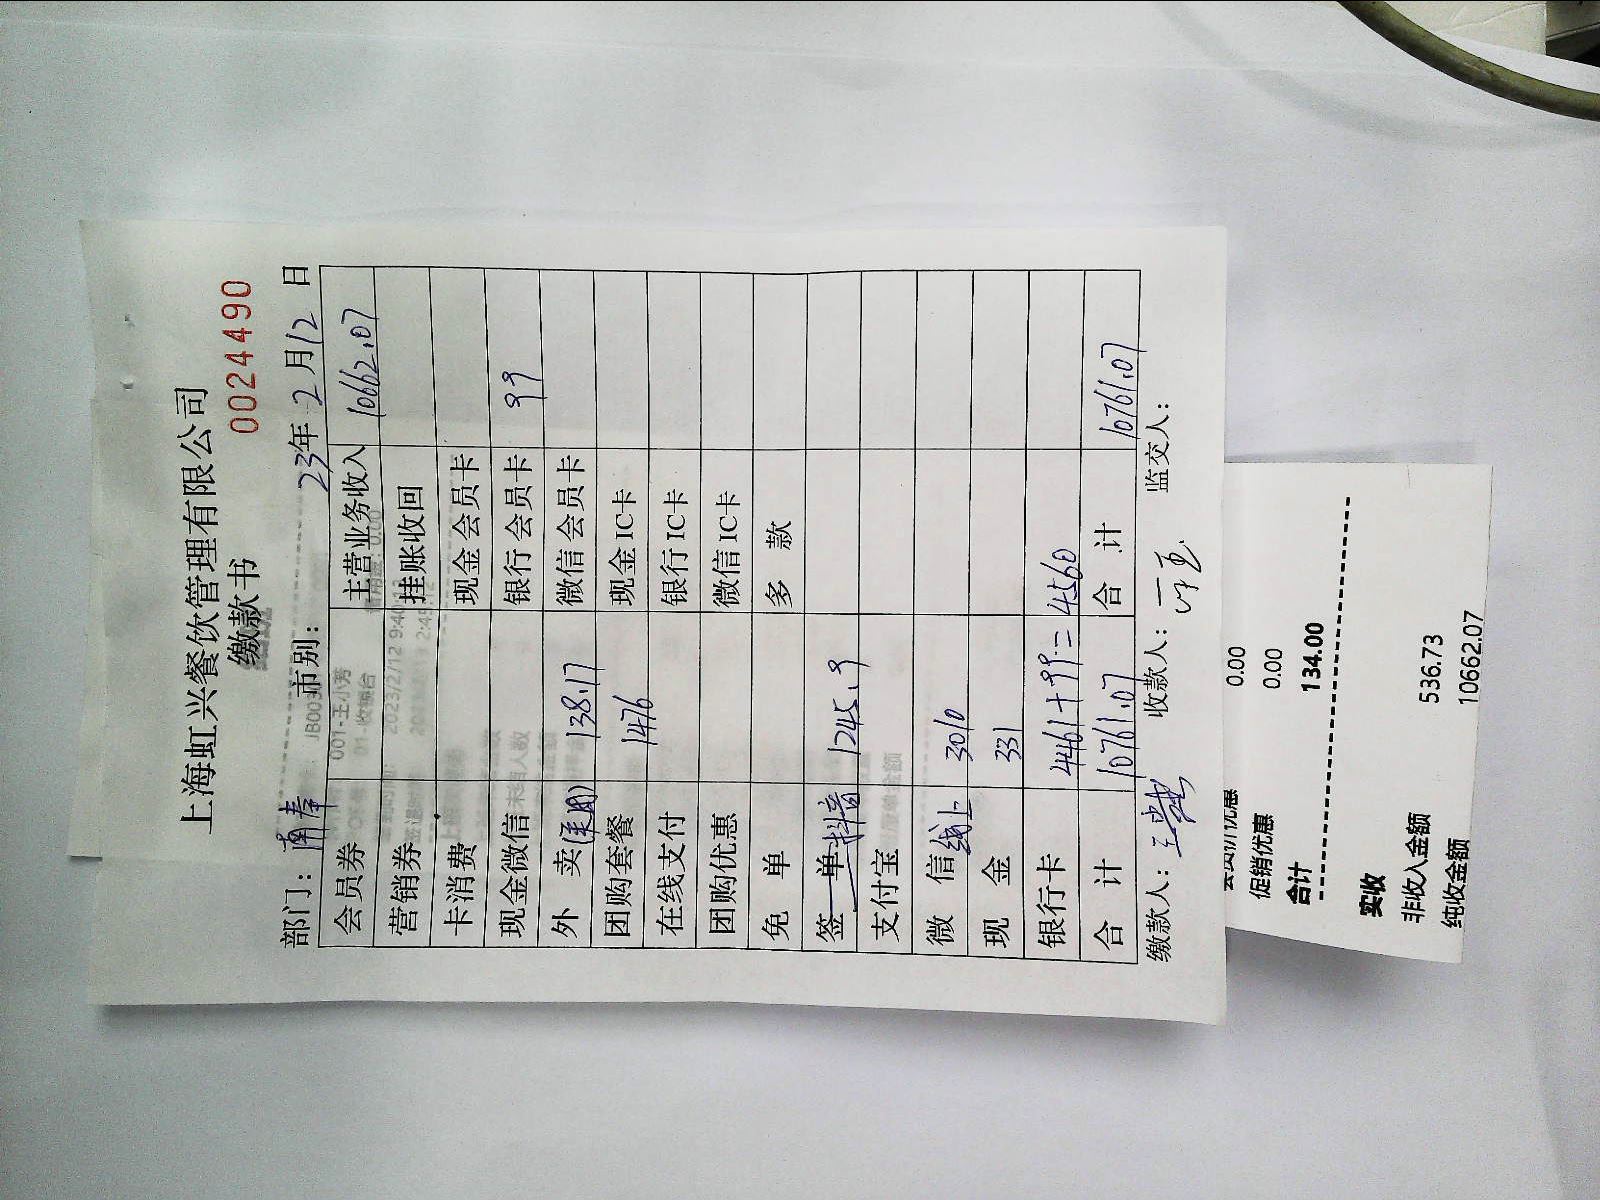 上海虹兴餐饮管理有限公司
缴款书
0024490
部门：南奉 市别： 23年2月12日
会员券 主营业务收入 10662.07
营销券 挂账收回
卡消费 现金会员卡
现金微信 银行会员卡 99
外 卖 138.17 微信会员卡
团购套餐 1476 现金IC卡
在线支付 银行IC卡
团购优惠 微信IC卡
免 单 多 款
签单 抖音 1245.9
支付宝
微 信 线上 3010
现 金 331
银行卡 4461+99=4560
合 计 10761.07 合 计 10761.07
缴款人： 收款人： 监交人：
0.00
促销优惠 0.00
合计 134.00
实收
非收入金额 536.73
纯收金额 10662.07